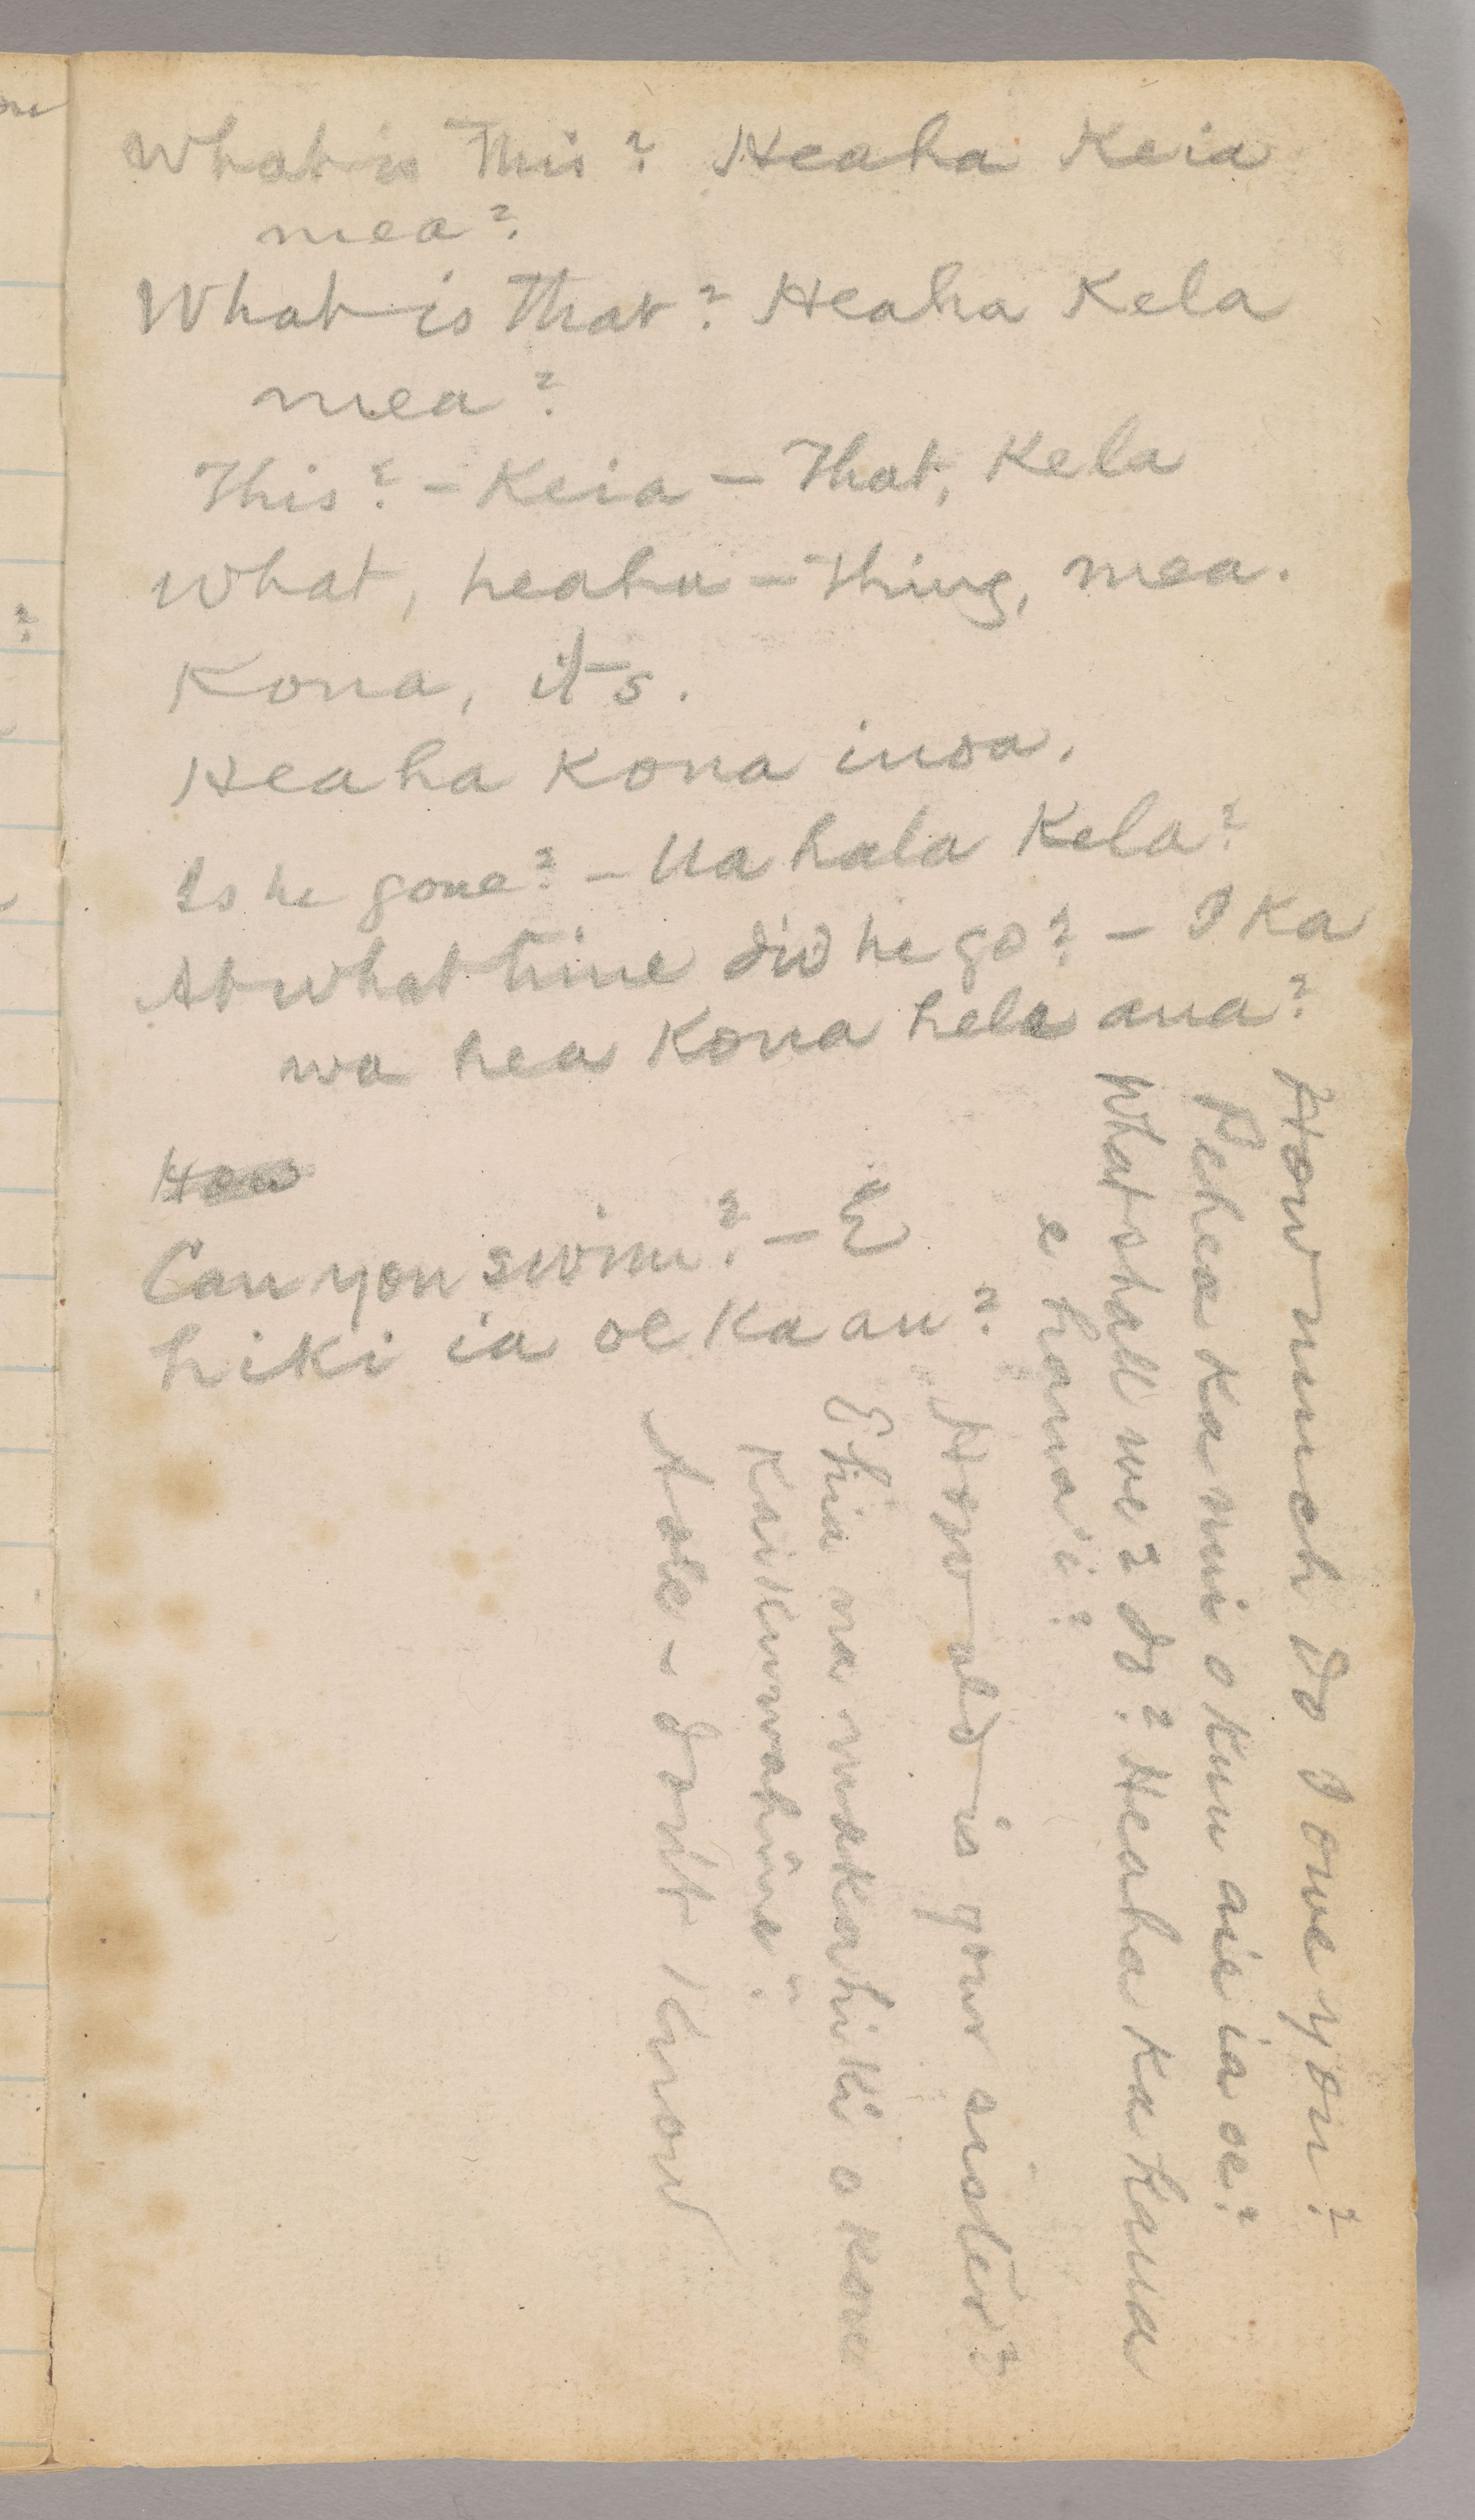 What is This? Heaha Keia
mea?
What is That? Heaha Kela
mea?
This? - Keia - That, Kela
What, heaha - Thing, mea.
Kona, its.
Heaha Kona inoa.
Is he gone? - Ua hala Kela?
At what time did he go? - I Ka
wa hea Kona hele ana?
How
Can you swim? - E
hiki ia oe Ka au?
How much do I owe you?
Pehea Ka nui o Kuu aie ia oe?
What shall we? do? Heaha Ka Kaua
e hana'i?
How old is your sister?
Ehia na makahiki o Kou
Kaikuwahine?
Aole - don't Know